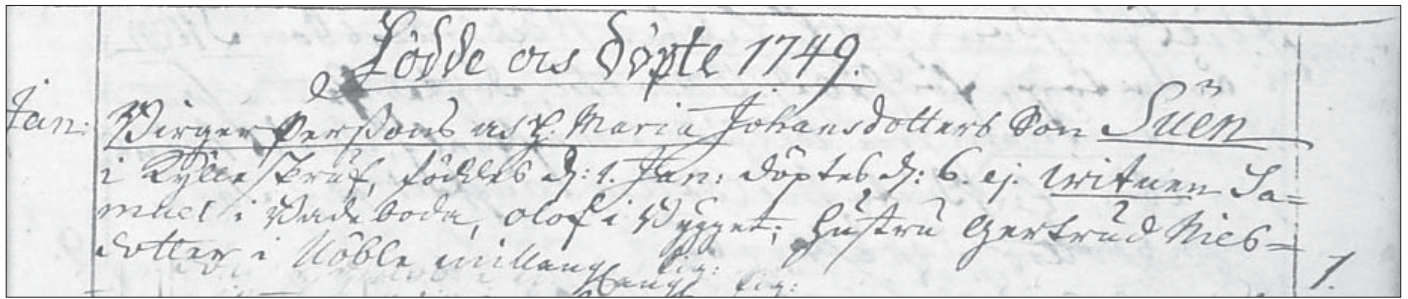 Födde och Döpte 1749.
Jan: Birger Perssons och H. Maria Johansdotters Son Suen
i föddes d: 1. Jan: döptes d: 6. ej. witnen Sa=
muel i Wadeboda, Olof i Bygget; Hustru Gertrud Niels=
dotter i
1.